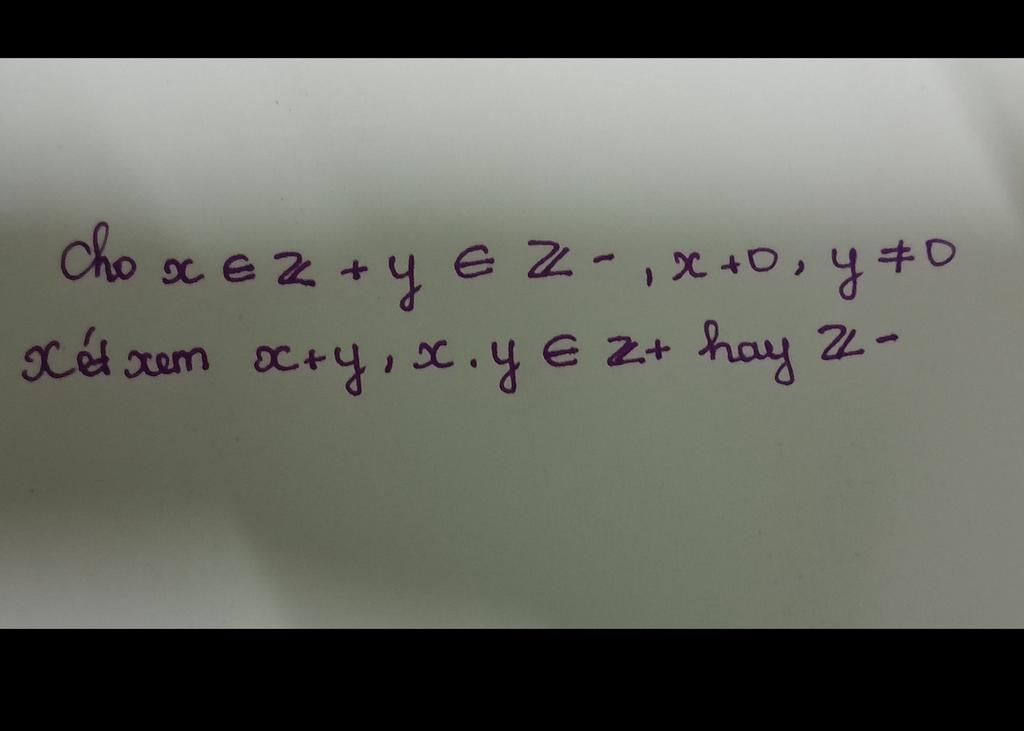 Cho x ∈ ℤ + y ∈ ℤ - , x + 0 , y ≠ 0
Xét xem x + y , x . y ∈ ℤ + hay ℤ -